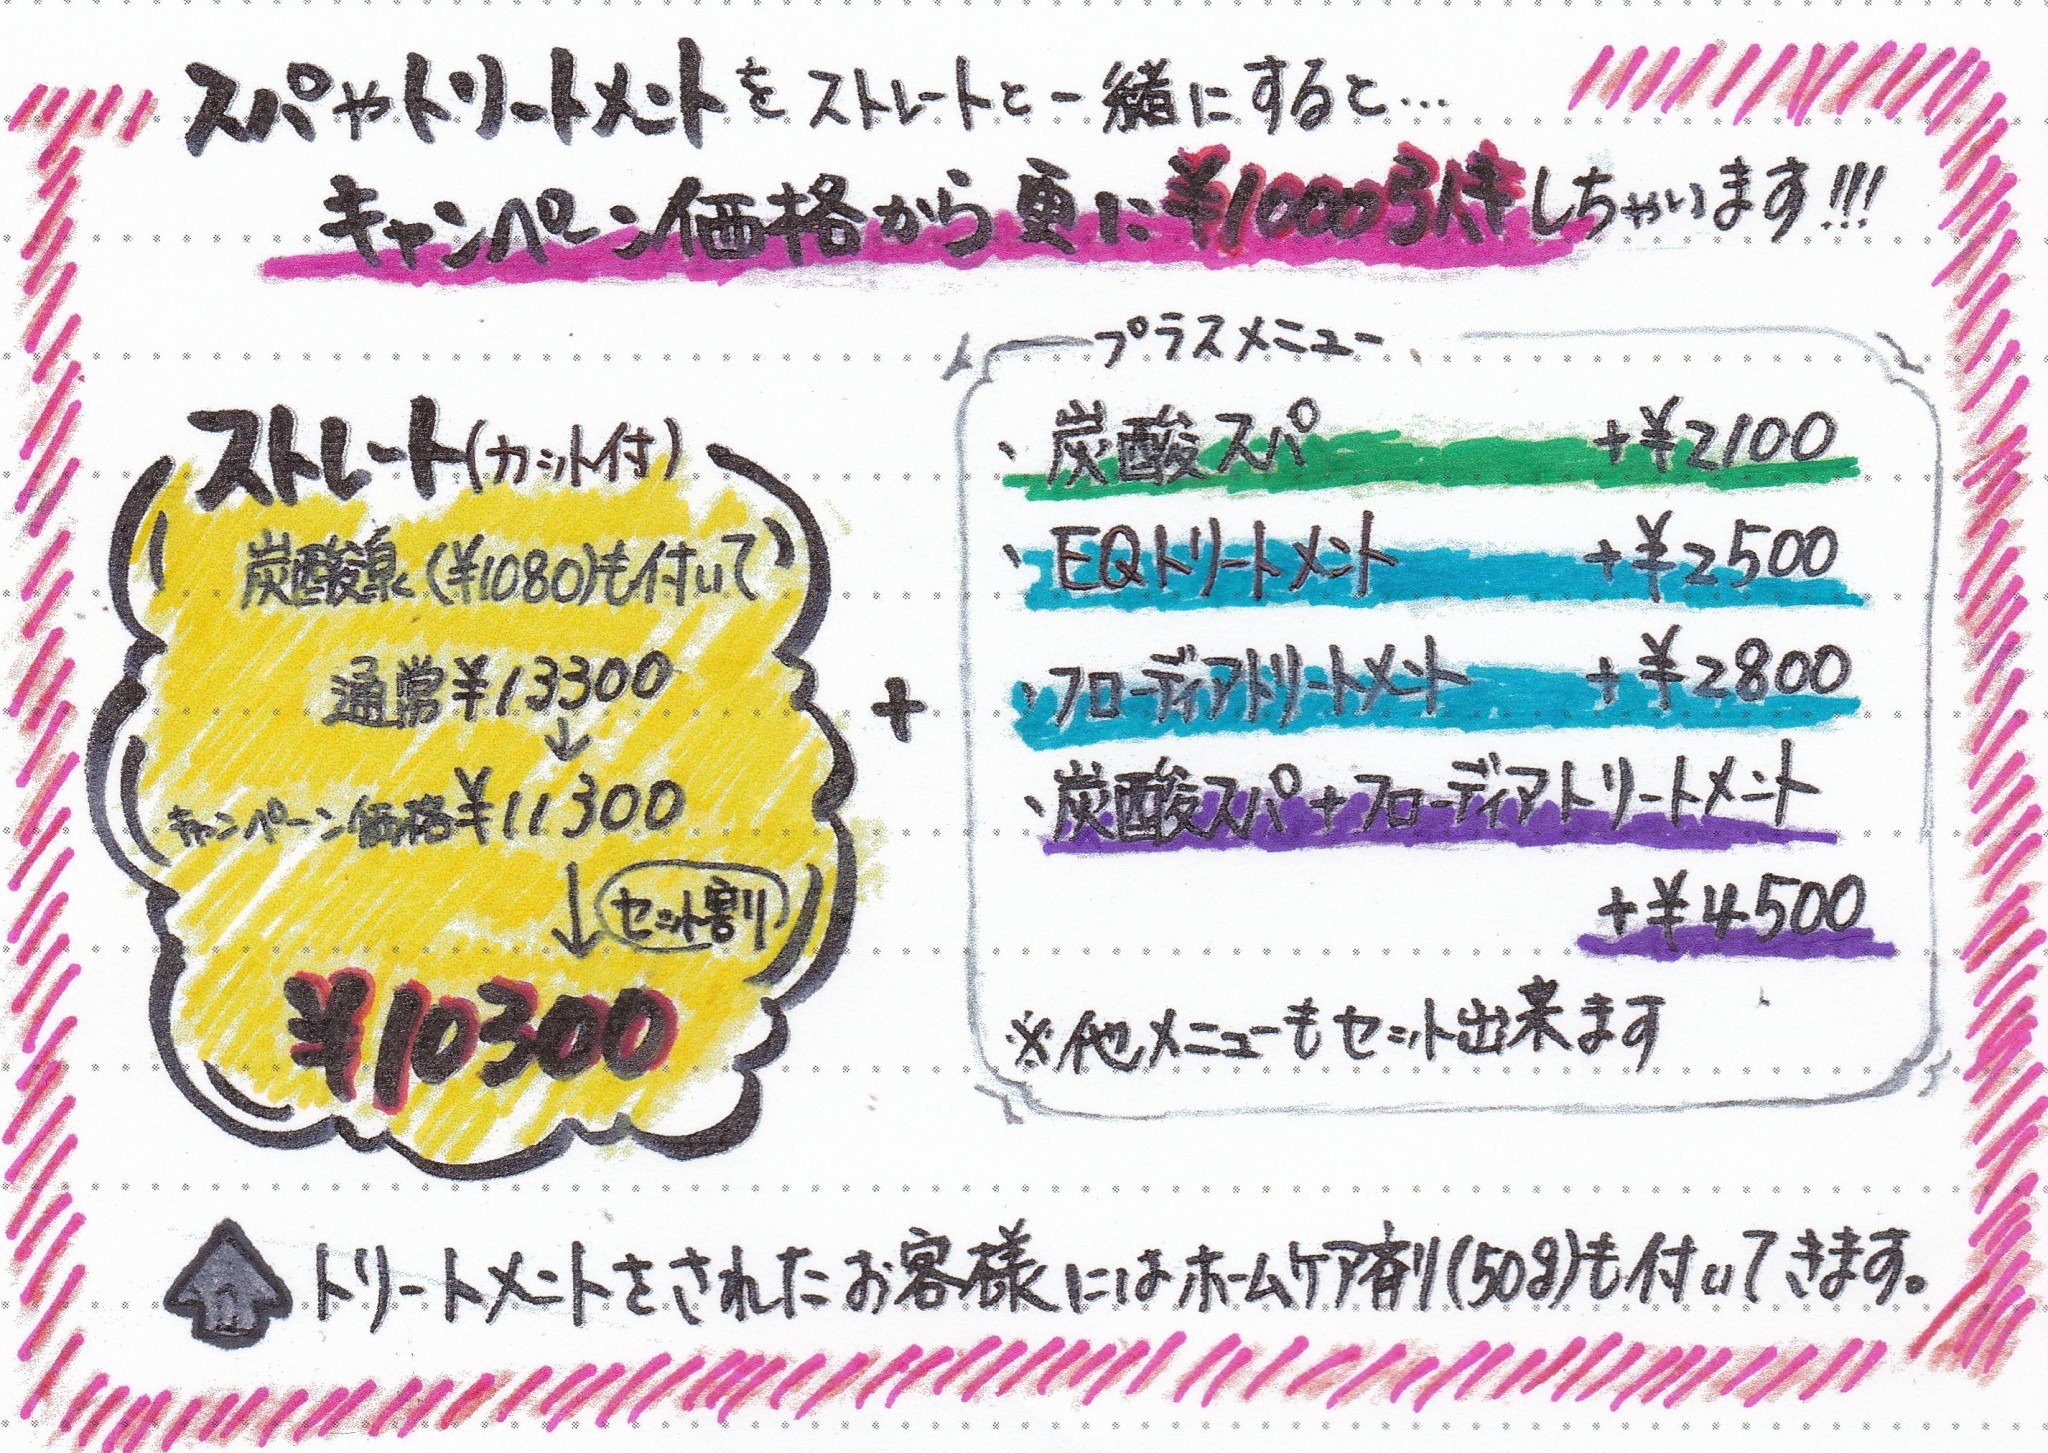 スパやトリートメントをストレートと一緒にすると…
キャンペーン価格から更に¥1000引きしちゃいます!!!
ストレート(カット付)
炭酸泉(¥1080)も付いて
通常¥13300
↓
キャンペーン価格¥11300
↓ セット割
¥10300
+
プラスメニュー
、炭酸スパ +¥2100
、EQトリートメント +¥2500
、フローディアトリートメント +¥2800
、炭酸スパ+フローディアトリートメント
+¥4500
※他メニューもセット出来ます
トリートメントをされたお客様にはホームケア剤(50g)も付いてきます。